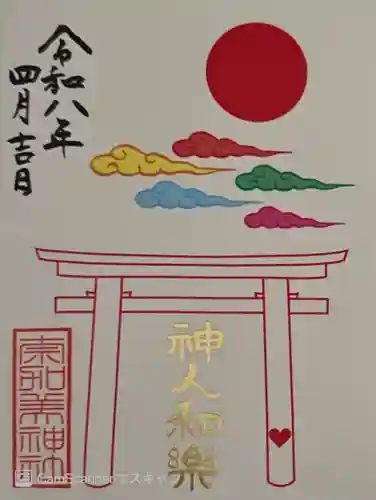 令和八年
四月吉日
神人和樂
東和美神社
CamScannerでスキャン